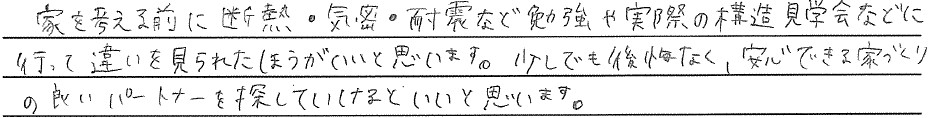 家を考える前に断熱・気密・耐震など勉強や実際の構造見学会などに
行って違いを見られたほうがいいと思います。少しでも後悔なく、安心できる家づくり
の良いパートナーを探していけるといいと思います。